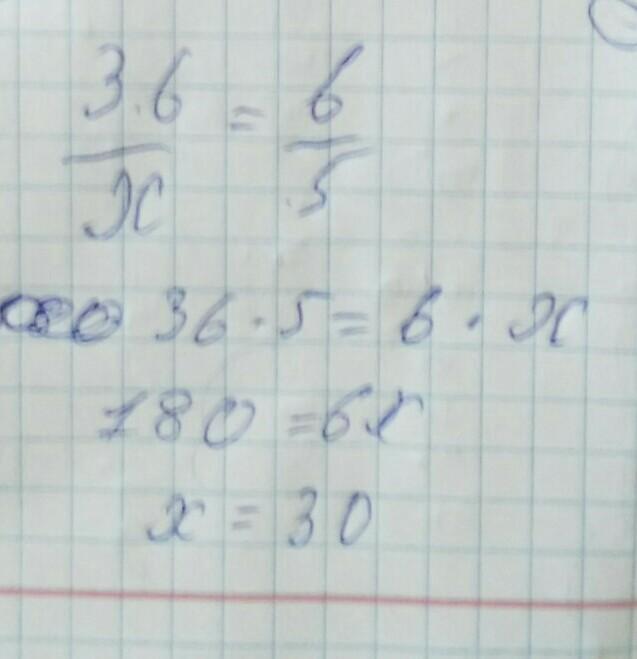 36/x = 6/5
36 · 5 = 6 · x
180 = 6x
x = 30